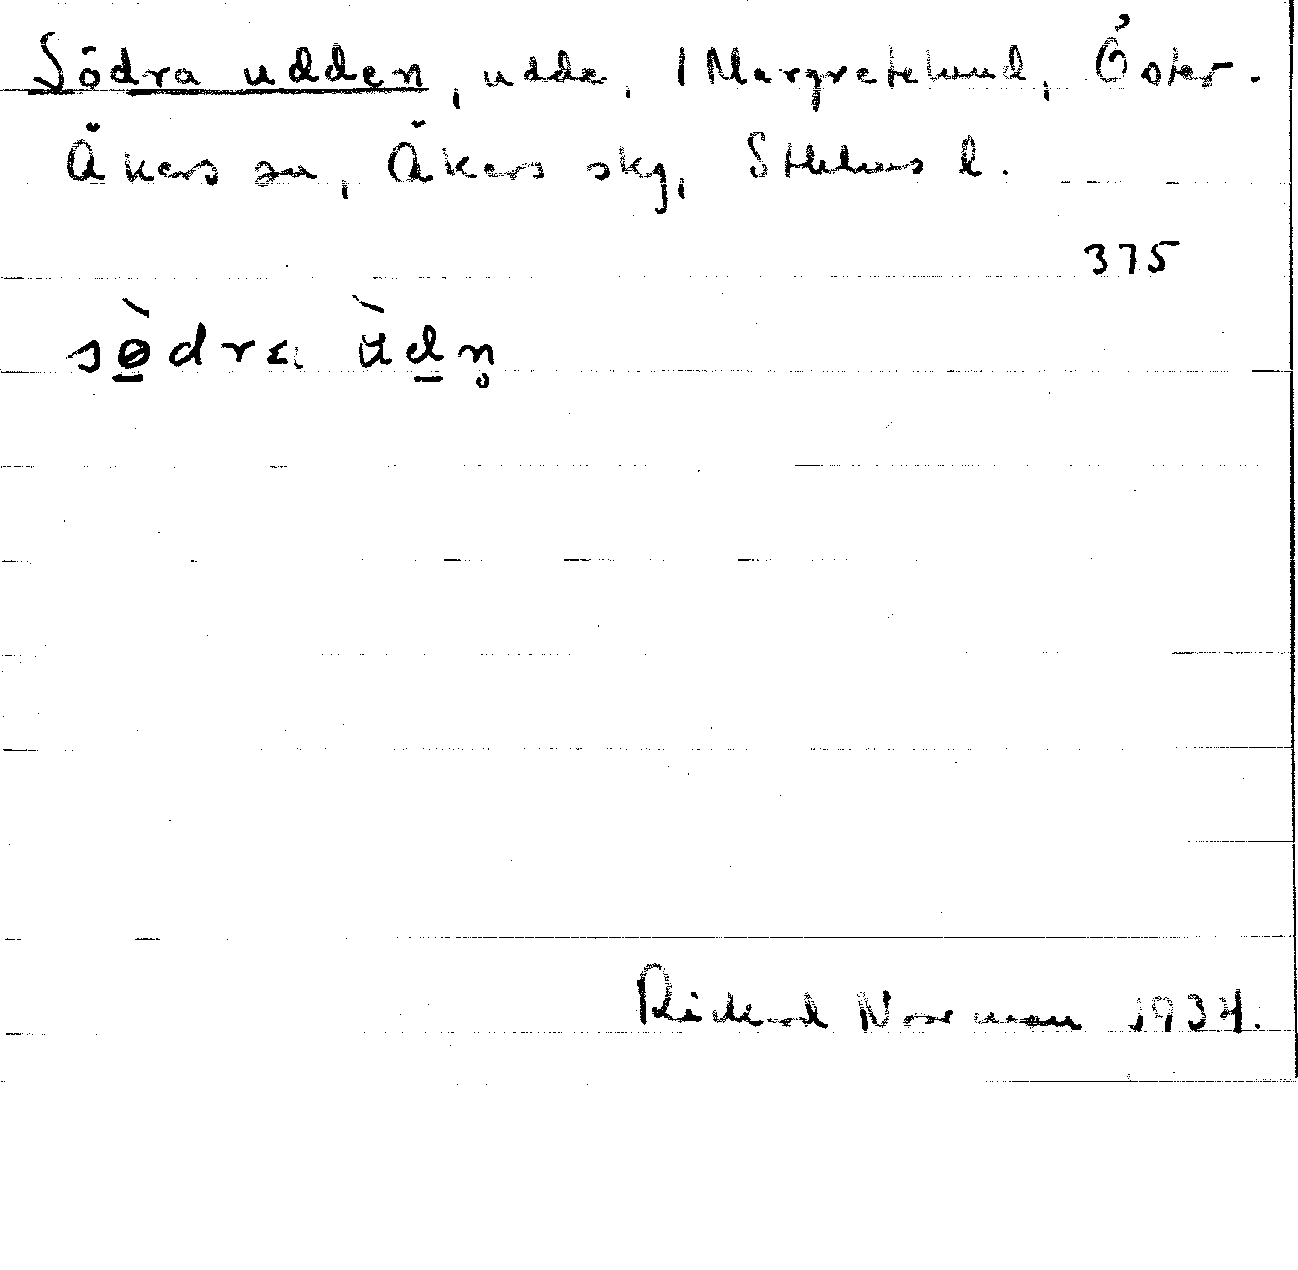 Södra udden, udde, 1 Margretelund, Öster-
Åkers sn, Åkers skg, Sthlms l.
375
sø̀drɛ ùdn̥
Rickard Norrman 1934.